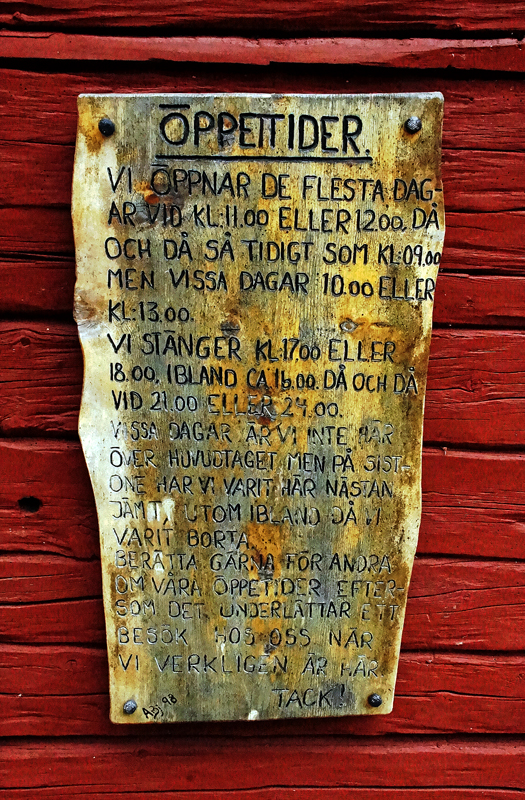 ÖPPETTIDER.
VI ÖPPNAR DE FLESTA DAG-
AR VID KL:11.00 ELLER 12.00, DÅ
OCH DÅ SÅ TIDIGT SOM KL:09.00
MEN VISSA DAGAR 10.00 ELLER
KL:13.00.
VI STÄNGER KL:17.00 ELLER
18.00, IBLAND CA 16.00. DÅ OCH DÅ
VID 21.00 ELLER 24.00.
VISSA DAGAR ÄR VI INTE HÄR
ÖVER HUVUDTAGET, MEN PÅ SIST-
ONE HAR VI VARIT HÄR NÄSTAN
JÄMT, UTOM IBLAND DÅ VI
VARIT BORTA.
BERÄTTA GÄRNA FÖR ANDRA
OM VÅRA ÖPPETIDER EFTER-
SOM DET UNDERLÄTTAR ETT
BESÖK HOS OSS NÄR
VI VERKLIGEN ÄR HÄR
TACK!